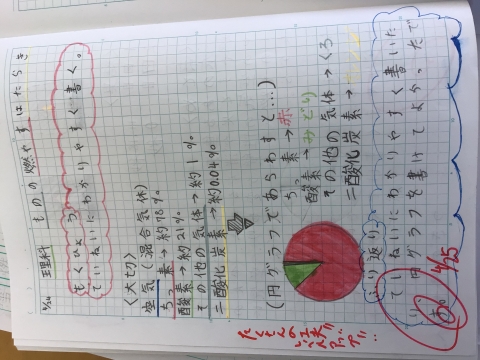 4/24 理科 ものの燃やすはたらき
もくひょう
ていねいにわかりやすく書く。
〈大切〉
空気(混合気体)
ちっ素→約78%
酸素→約21%
その他の気体→約1%
二酸化炭素→約0.04%
(円グラフであらわすと…)
ちっ素→赤
酸素→みどり
その他の気体→くろ
二酸化炭素→
ふり返り
ていねいにわかりやすく書いた
り円グラフを書けてよかったで
す。
4/25
たくさんの